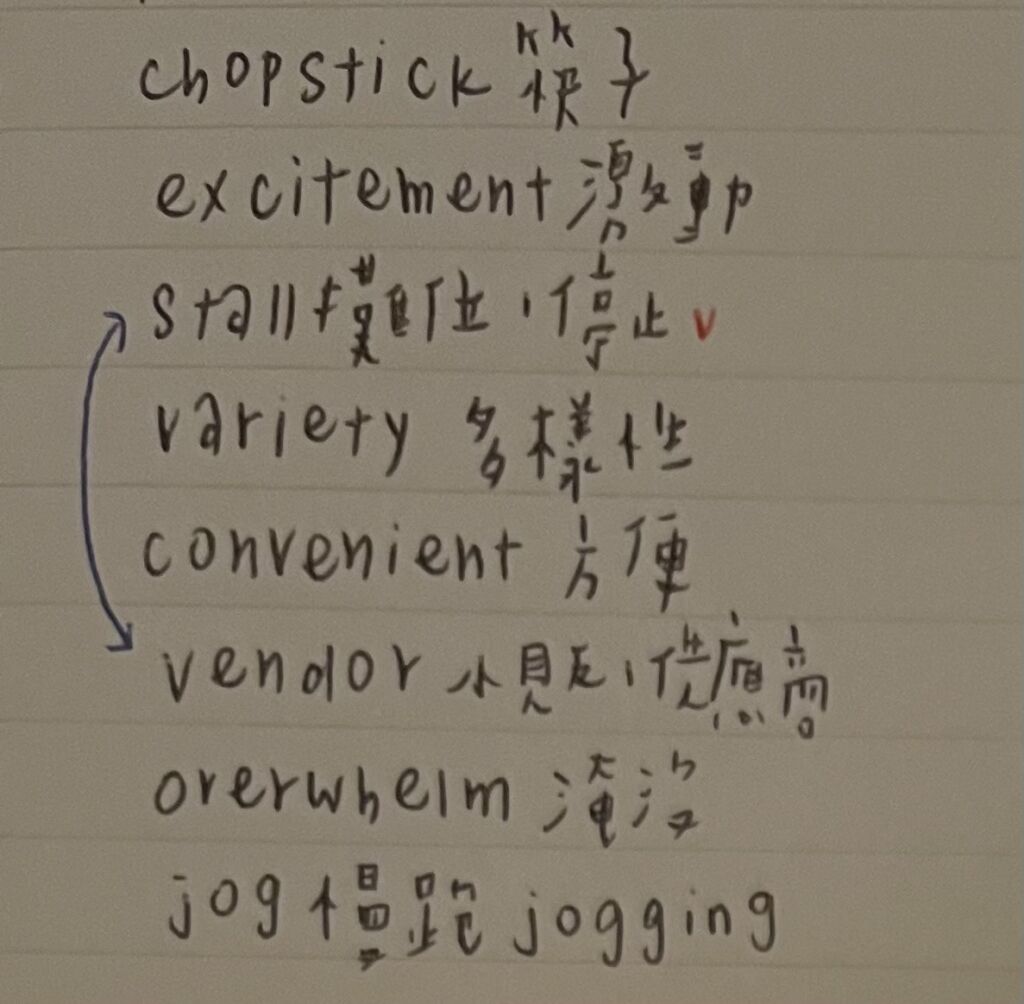 chopstick 筷子
excitement 激動
stall 攤位,停止 v
variety 多樣性
convenient 方便
vendor 小販,供應商
overwhelm 淹沒
jog 慢跑 jogging